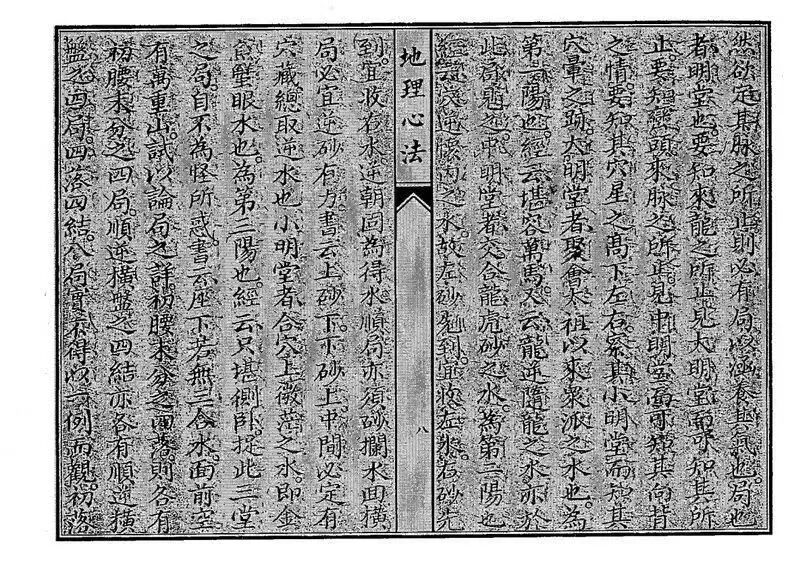 然欲定其脉之所止則必有局以涵養其氣也局也
者明堂也要知來龍之所止見大明堂而可知其所
止要知龍頭來脉之所止見中明堂而可知其向背
之情要知其穴星之高下左右察其小明堂而知其
穴暈之跡大明堂者聚會太祖以來眾派之水也為
第一陽也經云堪容萬馬又云龍逆隨龍之水亦於
此為中明堂者交合龍虎砂之水為第二陽也
經云穴逆腰內之水故左砂先到宜收左水右砂先
到宜收右水逆朝回為得水順局亦須砂攔水面橫
局必宜逆砂有力書云上砂下下砂上中間必定有
穴藏總取逆水也小明堂者合穴上微茫之水即金
魚蟹眼水也為第三陽也經云只堪側臥捉此三堂
之句自不為怪所惑書云座下若無三合水面前空
有萬重山試以論局之詳初腰末分之四落則各有
初腰末分之四局順逆橫盤之四結亦各有順逆橫
盤之四局四落四結八局實不得以一例而觀初落
地理心法
八